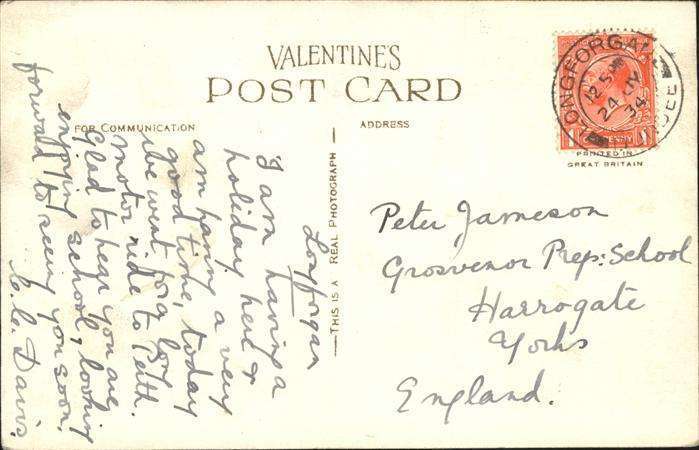 VALENTINES
POST CARD
FOR COMMUNICATION
ADDRESS
THIS IS A REAL PHOTOGRAPH
Longforgan
I am having a
holiday here &
am having a very
good time, today
we went for a long
motor ride to Perth.
Glad to hear you are
enjoying school, looking
forward to seeing you soon,
Davis.
LONGFORGAN
DUNDEE
12.5 PM
24 JY
34
1 PENNY 1
PRINTED IN
GREAT BRITAIN
Peter Jameson
Grosvenor Prep: School
Harrogate
Yorks
England.